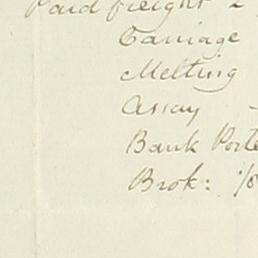 Paid freight
Carriage
Melting
Assay
Bank Porte
Brok: 1/8